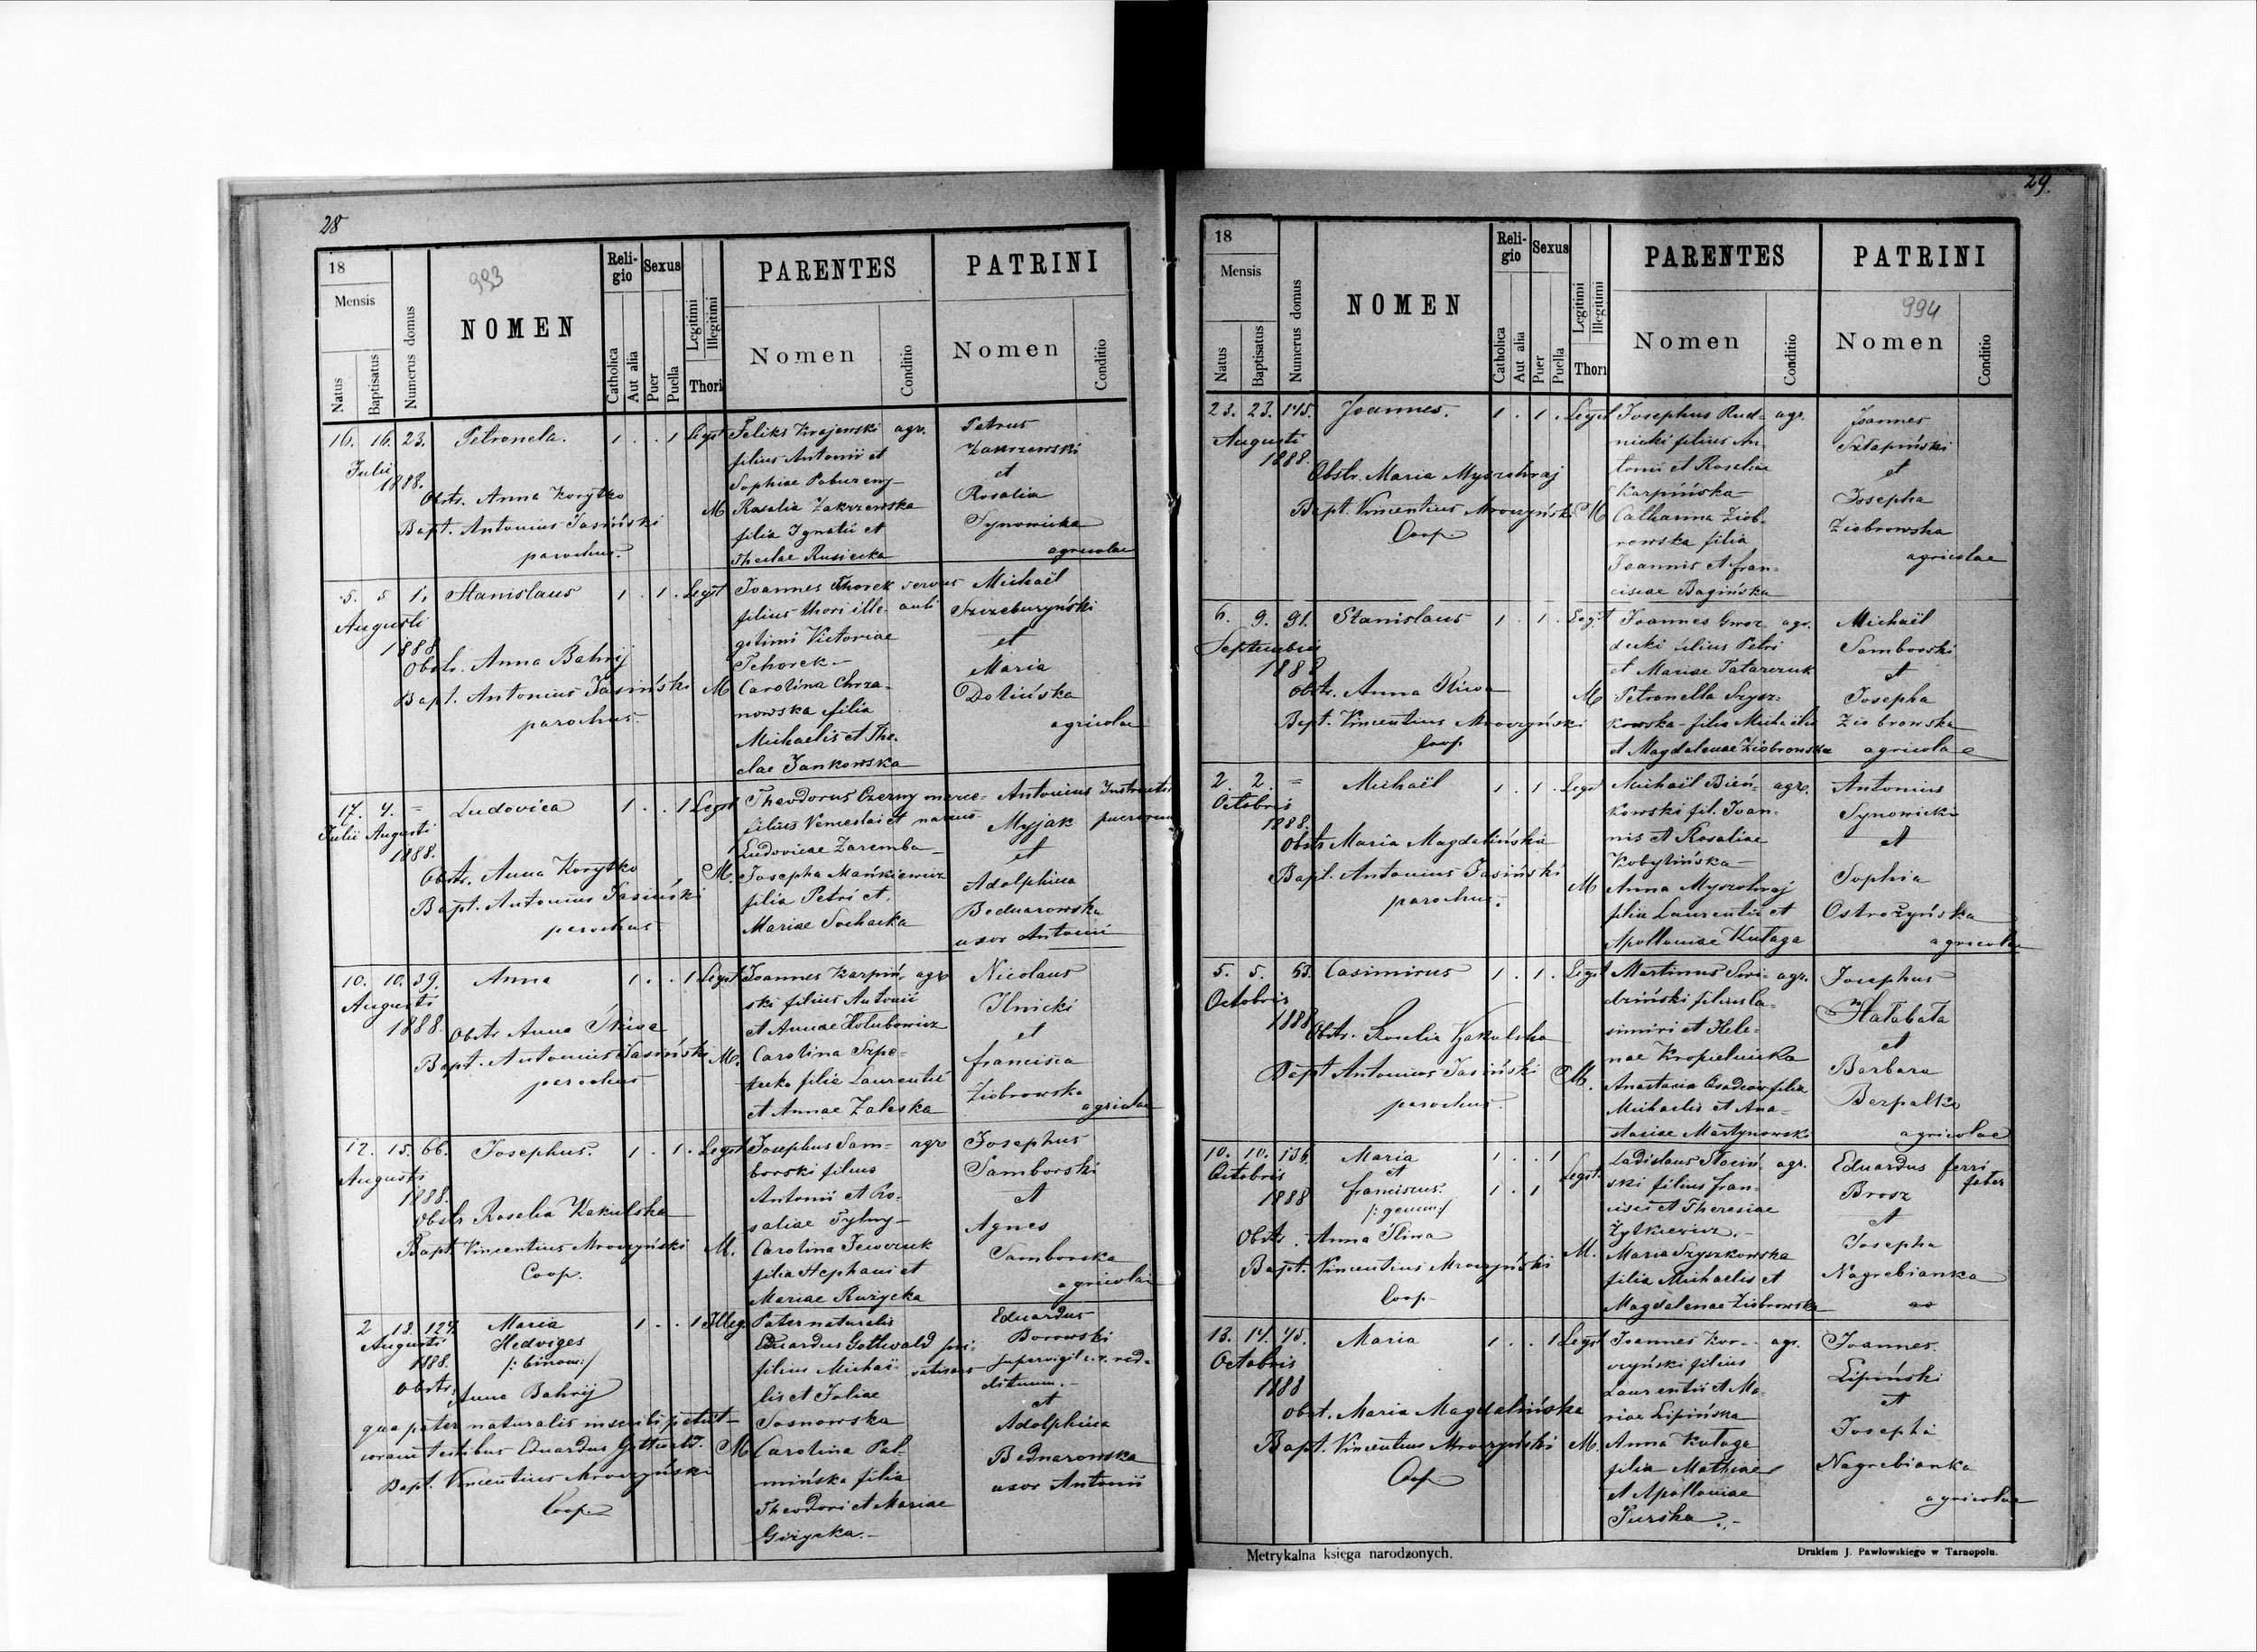 28
993
18
Mensis
Natus
Baptisatus
Numerus domus
NOMEN
Religio
Catholica
Aut alia
Sexus
Puer
Puella
Legitimi
Illegitimi
Thori
PARENTES
Nomen
Conditio
PATRINI
Nomen
Conditio
16. 16. 23. Petronela. 1 . . 1 Legit Feliks Krajewski agr. Petrus
Julii filius Antonii et Zakrzewski
1888. Sophiae et
Obstr. Anna Korytko M Rosalia Zakrzewska Rosalia
Bapt. Antonius Jasiński filia Ignatii et Synowicka
parochus. Theclae Rusiecka agricolae
5. 5 1. Stanislaus 1 . 1 . Legit Joannes Thorek servus Michaël
Augusti filius thori ille- auli Szizeburzyński
1888 gitimi Victoriae et
Obstr. Anna Bahrij Tchorek - Maria
Bapt. Antonius Jasiński M Carolina Chrza- Dolińska
parochus. nowska filia agricolae
Michaelis et The-
clae Jankowska
17. 4. = Ludovica 1 . . 1 Legit Theodorus Czerny Antonius
Julii Augusti filius Venceslai et Myjak puerorum
1888. Ludovicae Zaremba - et
Obstr. Anna Korytko M. Josepha Mańkiewicz Adolphina
Bapt. Antonius Jasiński filia Petri et Bednarowska
parochus Mariae Sochacka uxor Antonii
10. 10. 39. Anna 1 . . 1 Legit Joannes Karpiń- agr Nicolaus
Augusti ski filius Antonii Ilnicki
1888. et Annae Holubowicz et
Obstr Anna M. Carolina Szpe- Francisca
Bapt. Antonius Jasiński filia Laurentii Ziobrowska
parochus et Annae Zaleska agricolae
12. 15. 66. Josephus. 1 . 1 . Legit Josephus Sam- agr Josephus
Augusti borski filius Samborski
1888. Antonii et Ro- et
Obstr Roselia Kakulska saliae Tylny - Agnes
Bapt. Vincentius Mroczyński M. Carolina Jewczuk Samborska
Coop. filia Stephani et agricolae
Mariae Ruzycka
2 13. 124. Maria 1 . . 1 Illeg. Pater naturalis Eduardus
Augusti Hedviges Eduardus Gottwald pri- Borowski
1888. /: binom :/ filius Michaë- vatisans
Obstr. Anna Bahrij lis et Juliae et
qua pater naturalis inscribi petiit - Sosnowska Adolphina
coram testibus Eduardus Gottwald. M Carolina Pal- Bednarowska
Bapt. Vincentius Mroczyński mińska filia uxor Antonii
Coop. Theodori et Mariae
Giżycka. -
29.
18
Mensis
Natus
Baptisatus
Numerus domus
NOMEN
Religio
Catholica
Aut alia
Sexus
Puer
Puella
Legitimi
Illegitimi
Thori
PARENTES
Nomen
Conditio
PATRINI
994
Nomen
Conditio
23. 23. 145. Joannes. 1 . 1 . Legit Josephus Rud- agr. Joannes
Augusti nicki filius An- Szłapiński
1888. tonii et Roseliae et
Obstr. Maria Myszohraj Karpińska - Josepha
Bapt. Vincentius Mroczyński M Catharina Ziob- Ziobrowska
Coop. rowska filia agricolae
Joannis et Fran-
ciscae Bagińska
6. 9. 91. Stanislaus 1 . 1 . Legit Joannes Gwoz- agr. Michaël
Septembris decki filius Petri Samborski
1888 et Mariae Tatarczuk et
Obstr. Anna Sliwa M Petronella Szysz- Josepha
Bapt. Vincentius Mroczyński kowska - filia Michaelis Ziobrowska
Coop. et Magdalenae Ziobrowska agricolae
2. 2. = Michaël 1 . 1 . Legit Michaël Bień- agr. Antonius
Octobris kowski fil. Joan- Synowicki
1888. nis et Rosaliae et
Obstr Maria Magdalińska Kobylińska - Sophia
Bapt. Antonius Jasiński M Anna Myszohraj Ostrożyńska
parochus. filia Laurentii et agricolae
Apolloniae Kutaga
5. 5. 63. Casimirus 1 . 1 . Legit Martinus Swi- agr. Josephus
Octobris dziński filius Ca- Hałabała
1888 simiri et Hele- et
Obstr. Roselia Kakulska nae Kropielnicka Barbara
Bapt Antonius Jasiński M. Anastasia filia Berpalko
parochus. Michaelis et Ana- agricolae
stasiae Martynowski
10. 10. 136. Maria 1 . . 1 Legit. Ladislaus Słociń- agr. Eduardus ferri
Octobris et ski filius Fran- Brosz faber
1888 Franciscus. 1 . 1 cisci et Theresiae et
/: gemini :/ Żytkiewicz. - Josepha
Obstr. Anna Sliwa M. Maria Szyszkowska Nagrebianka
Bapt. Vincentius Mroczyński filia Michaelis et
Coop. Magdalenae Ziobrowska
13. 14. 45. Maria 1 . . 1 Legit Joannes Kor- agr. Joannes
Octobris czyński filius Lipiński
1888 Laurentii et Ma- et
Obst. Maria Magdalińska riae Lipińska Josepha
Bapt. Vincentius Mroczyński M. Anna Kutaga Nagrebianka
Coop filia Mathiae agricolae
et Apolloniae
Turska. -
Metrykalna księga narodzonych.
Drukiem J. Pawłowskiego w Tarnopolu.